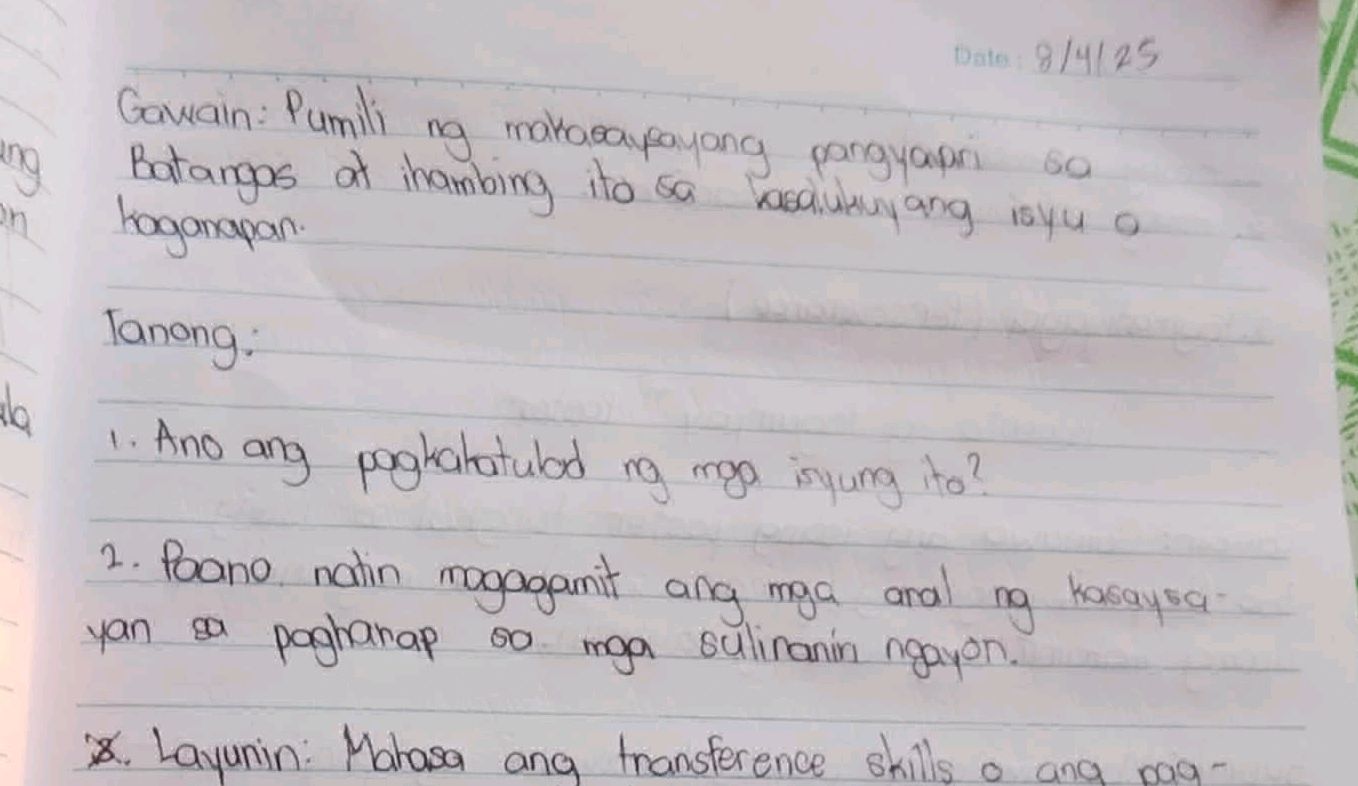 ing
Date: 8/4/25
Gawain: Pumili ng makasaysayang pangyapri sa
Batangas at ihambing ito sa kasalukuyang isyu o
kaganapan.
Tanong:
1. Ano ang pagkakatulad ng mga isyung ito?
2. Paano natin magagamit ang mga aral ng kasaysa-
yan sa pagharap sa mga sulinanin ngayon.
Layunin: Mahasa ang transference skills o ang pag-